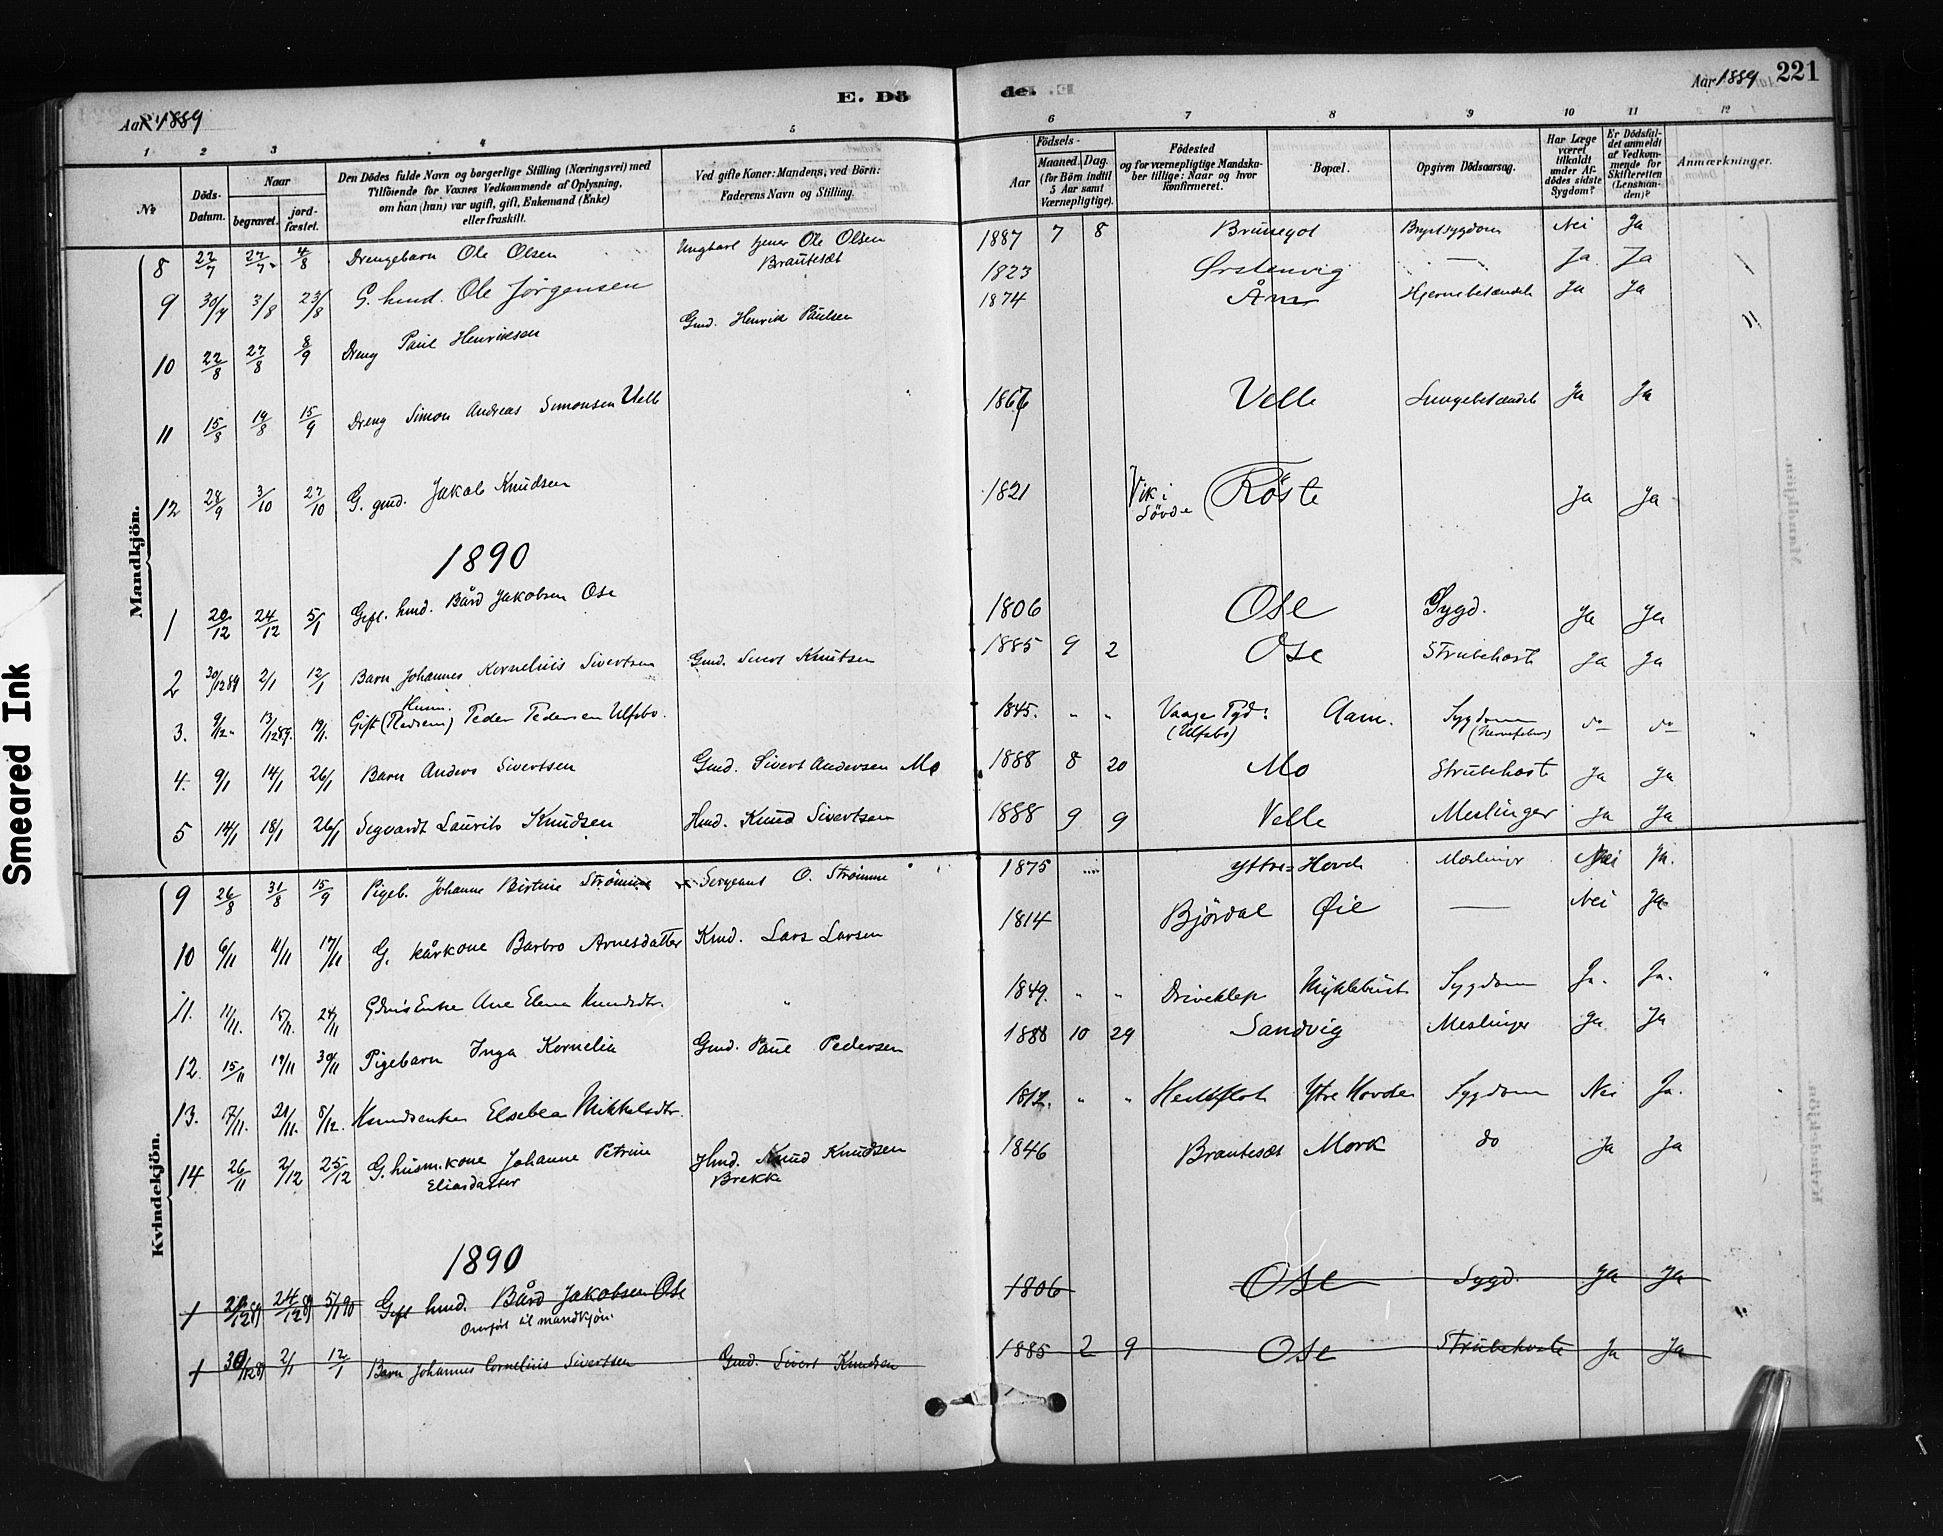 Aar 1889
E. Dö
de.
Aar 1889 221
1 2 3 4 5 6 7 8 9 10 11 12
№
Döds-Datum.
Naar
begravet.
jord-fæstet.
Den Dödes fulde Navn og borgerlige Stilling (Næringsvei) med
Tilföiende for Voxnes Vedkommende af Oplysning,
om han (hun) var ugift, gift, Enkemand (Enke)
eller fraskilt.
Ved gifte Koner: Mandens, ved Börn:
Faderens Navn og Stilling.
Födsels-
Aar
Maaned. Dag.
(for Börn indtil
5 Aar samt
Værnepligtige).
Födested
og for værnepligtige Mandska-
ber tillige: Naar og hvor
konfirmeret.
Bopæl.
Opgiven Dödsaarsag.
Har Læge
været
tilkaldt
under Af-
dödes sidste
Sygdom?
Er Dödsfal-
det anmeldt
af Vedkom-
mende for
Skifteretten
(Lensman-
den)?
Anmærkninger.
Mandkjön.
8 22/7 27/7 4/8 Drengebarn Ole Olsen Ungkarl tjener Ole Olsen Brautesæt 1887 7 8 Brystsygdom Nei Ja
9 30/7 3/8 23/8 G. hmd. Ole Jørgensen 1823 Ørstenvig — Ja Ja
10 22/8 27/8 8/9 Dreng Paul Henriksen Gmd. Henrik Paulsen 1874 Åm Hjernebetændelse Ja Ja
11 15/8 19/8 15/9 Dreng Simon Andreas Simonsen Velle Velle Lungebetændelse Ja Ja
12 28/9 3/10 27/10 G. gmd. Jakob Knudsen 1821 Vik i Søvde Röste Ja Ja
1890
1 20/12 24/12 5/1 Gift hmd. Bård Jakobsen Ose 1806 Ose Sygd. Ja Ja
2 30/12 89 2/1 12/1 Barn Johannes Kornelius Sivertsen Gmd. Sivert Knutsen 1885 9 2 Ose Strubehoste Ja Ja
3. 9/12 13/12 89. 19/1. Gift Husm. Peder Pedersen Ulfsbø. 1845. " " (Ulfsbø) Aam. Sygdom do do
4. 9/1 14/1 26/1 Barn Anders Sivertsen Gmd. Sivert Andersen Mo 1888 8 20 Mo Strubehoste Ja Ja
5 14/1 18/1 26/1 Segvardt Laurits Knudsen Hmd. Knud Sivertsen 1888 9 9 Velle Meslinger Ja Ja
Kvindekjön.
9 26/8 31/8 15/9 Pigeb. Johanne Bertine Strömme Sergeant O. Strömme 1875 Yttre-Hovde Mæslinger Nei Ja.
10 6/11 11/11 17/11 G. kårkone Barbro Arnesdatter Kmd. Lars Larsen 1814 Björdal Øie — Nei Ja
11. 11/11. 15/11. 24/11 Ane Elena Knudsdtr. " 1849. " " Driveklep Myklebust Sygdom Ja. Ja.
12. 15/11 19/11 30/11 Pigebarn Inga Kornelia Gmd. Paul Pedersen 1888 10 29 Sandvig Meslinger Ja Ja
13. 17/11. 21/11. 8/12. Elseblea Mikkelsdtr. 1812. " " Ytre Hovde Sygdom Nei Ja.
14 26/11 2/12 25/12 G. husm.kone Johanne Petrine Eliasdatter Hmd. Knud Knudsen Brekke 1846 Brautesæt Mork do Ja Ja
1890
1 20/12 89 24/12 89 5/1 90 Gift hmd. Bård Jakobsen Ose 1806 Ose Sygd. Ja Ja
Overført til mandkjön.
1 30/12 89 2/1 12/1 Barn Johannes Cornelius Sivertsen Gmd. Sivert Knudsen 1885 2 9 Ose Strubehoste Ja Ja
Smeared Ink